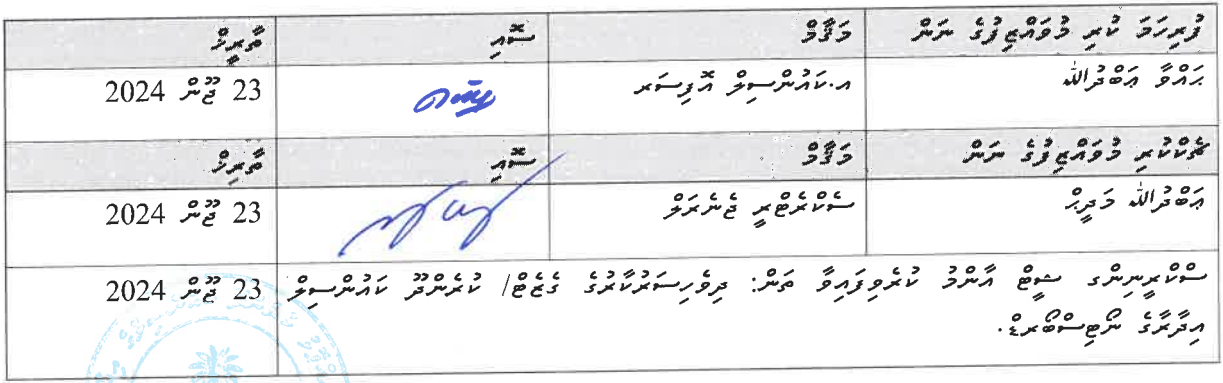 ފުރިހަމަ ކުރި މުވައްޒިފުގެ ނަން މަޤާމް ސޮއި ތާރީޚް
ޙައްވާ ޢަބްދުﷲ އ.ކައުންސިލް އޮފިސަރ 23 ޖޫން 2024
ޗެކްކުރި މުވައްޒިފުގެ ނަން މަޤާމް ސޮއި ތާރިޚް
ޢަބްދުﷲ މަދީޙް ސެކްރެޓްރީ ޖެނެރަލް 23 ޖޫން 2024
ސްކްރީނިންގ ޝީޓް އާންމު ކުރެވިފައިވާ ތަން: ދިވެހިސަރުކާރުގެ ގެޒެޓް/ ކުރެންދޫ ކައުންސިލް 23 ޖޫން 2024
އިދާރާގެ ނޯޓިސްބޯރޑް.